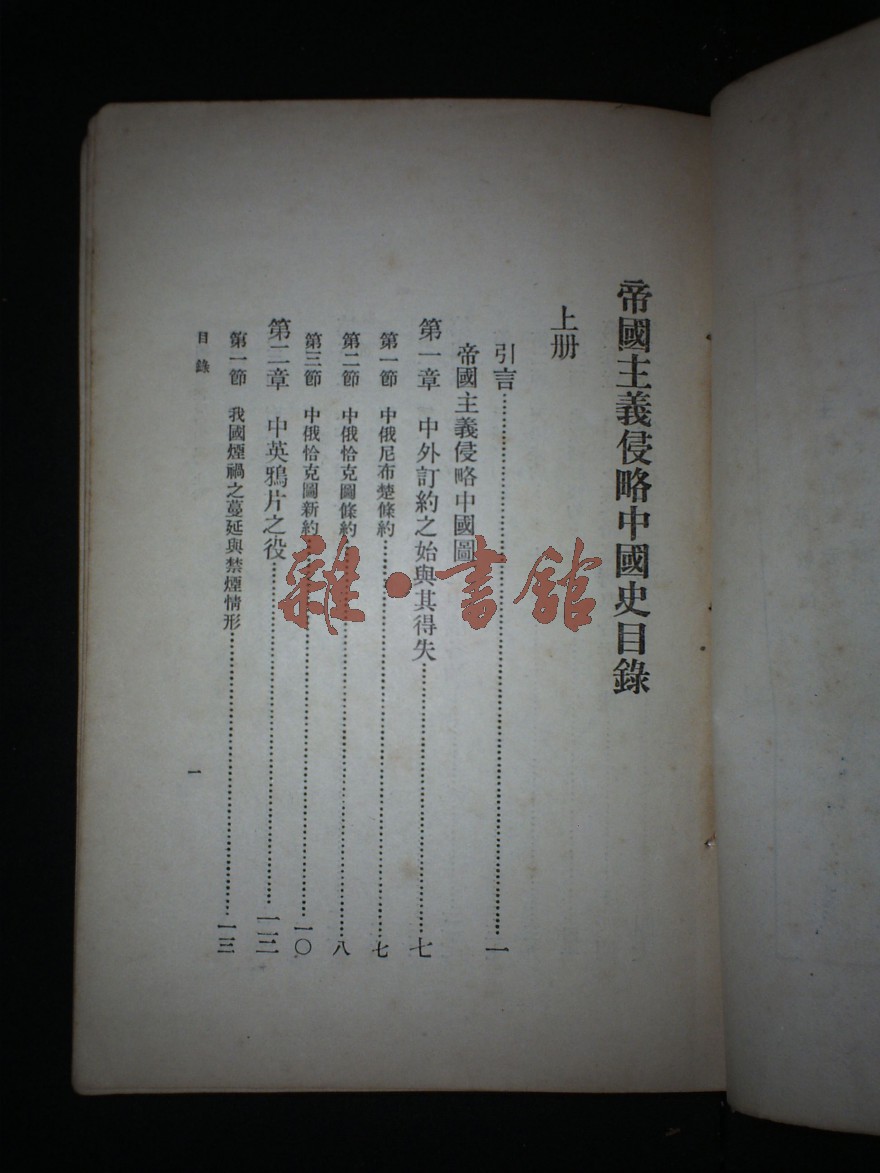 帝國主義侵略中國史目錄
上册
引言……一
帝國主義侵略中國圖
第一章 中外訂約之始與其得失……七
第一節 中俄尼布楚條約……七
第二節 中俄恰克圖條約……八
第三節 中俄恰克圖新約……一〇
第二章 中英鴉片之役……一三
第一節 我國煙禍之蔓延與禁煙情形……一三
目錄
一
雜·書館